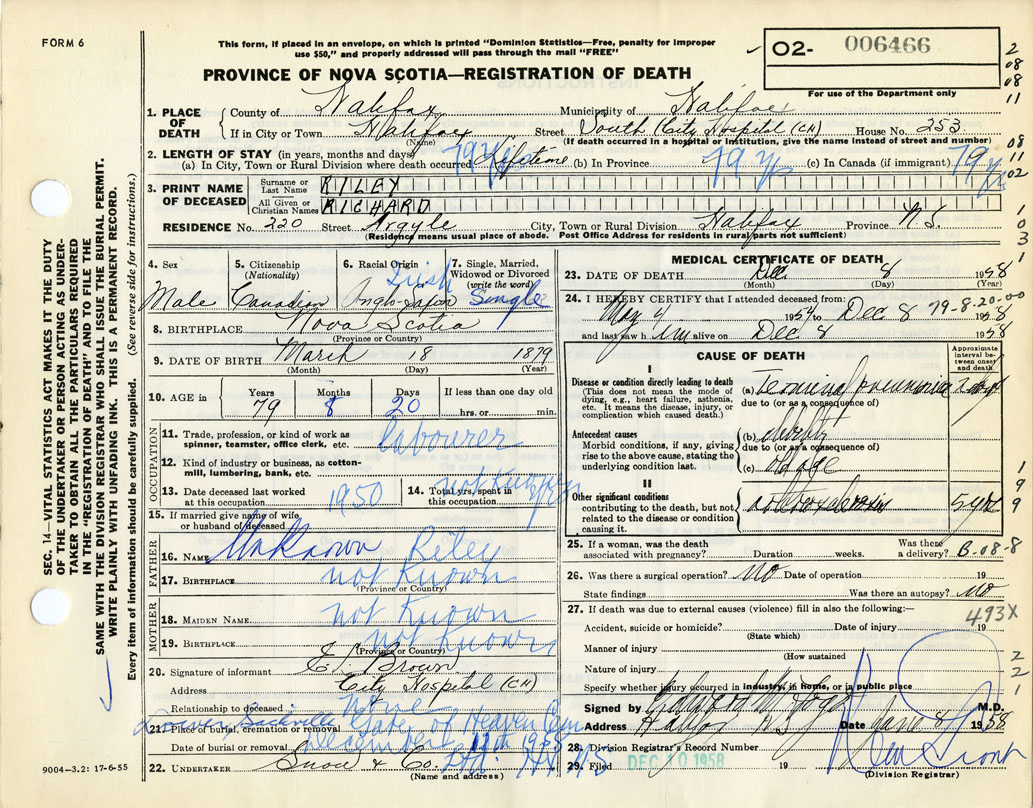 FORM 6
This form, if placed in an envelope, on which is printed "Dominion Statistics—Free, penalty for improper
use $50," and properly addressed will pass through the mail "FREE"
PROVINCE OF NOVA SCOTIA—REGISTRATION OF DEATH
02- 006466
For use of the Department only
2
08
08
11
1. PLACE OF DEATH
County of Halifax Municipality of Halifax
If in City or Town Halifax Street South City Hospital (CH) House No. 253
(Name) (If death occurred in a hospital or institution, give the name instead of street and number)
2. LENGTH OF STAY (in years, months and days)
(a) In City, Town or Rural Division where death occurred 79 yrs Lifetime (b) In Province 79 yrs (c) In Canada (if immigrant) 79 yrs
08
11
02
3. PRINT NAME OF DECEASED
Surname or Last Name RILEY
All Given or Christian Names RICHARD
RESIDENCE No. 220 Street Argyle City, Town or Rural Division Halifax Province N.S.
(Residence means usual place of abode. Post Office Address for residents in rural parts not sufficient)
1
0
3
4. Sex Male
5. Citizenship (Nationality) Canadian
6. Racial Origin Irish Anglo-Saxon
7. Single, Married, Widowed or Divorced (write the word) Single
8. BIRTHPLACE Nova Scotia
(Province or Country)
9. DATE OF BIRTH March 18 1879
(Month) (Day) (Year)
10. AGE in Years 79 Months 8 Days 20 If less than one day hrs. or min.
OCCUPATION
11. Trade, profession, or kind of work as spinner, teamster, office clerk, etc. labourer
12. Kind of industry or business, as cotton-mill, lumbering, bank, etc.
13. Date deceased last worked at this occupation 1950
14. Total yrs. spent in this occupation not known
15. If married give name of wife or husband of deceased
FATHER
16. NAME Unknown Riley
17. BIRTHPLACE not known
(Province or Country)
MOTHER
18. MAIDEN NAME not known
19. BIRTHPLACE not known
(Province or Country)
20. Signature of informant E. Brown
Address City Hospital (CH)
Relationship to deceased none
21. Place of burial, cremation or removal Lower Sackville Gate of Heaven Cem
Date of burial or removal December 11th 1958
22. UNDERTAKER Snow & Co. Ltd. Hfx N.S.
(Name and address)
9004-3.2: 17-6-55
MEDICAL CERTIFICATE OF DEATH
23. DATE OF DEATH Dec 8 1958
(Month) (Day) (Year)
24. I HEREBY CERTIFY that I attended deceased from:
79-8-20-00
May 4 1954 to Dec 8 1958
and last saw him alive on Dec 8 1958
1
CAUSE OF DEATH
Approximate interval between onset and death
I
Disease or condition directly leading to death (This does not mean the mode of dying, e.g., heart failure, asthenia, etc. It means the disease, injury, or complication which caused death.)
(a) Terminal pneumonia 2 days
due to (or as a consequence of)
Antecedent causes
Morbid conditions, if any, giving rise to the above cause, stating the underlying condition last.
(b)
due to (or as a consequence of)
(c) old age
II
Other significant conditions contributing to the death, but not related to the disease or condition causing it.
arteriosclerosis 5 yrs
1
9
9
25. If a woman, was the death associated with pregnancy? Duration weeks. Was there a delivery? B-08-8
26. Was there a surgical operation? No Date of operation 19
State findings Was there an autopsy? No
27. If death was due to external causes (violence) fill in also the following:—
493X
Accident, suicide or homicide? Date of injury 19
(State which)
Manner of injury
(How sustained
Nature of injury
Specify whether injury occurred in industry, in home, or in public place
2
2
1
Signed by M.D.
Address Halifax N.S. Date 8 1958
28. Division Registrar's Record Number
29. Filed DEC 10 1958 19
(Division Registrar)
SEC. 14—VITAL STATISTICS ACT MAKES IT THE DUTY
OF THE UNDERTAKER OR PERSON ACTING AS UNDER-
TAKER TO OBTAIN ALL THE PARTICULARS REQUIRED
IN THE "REGISTRATION OF DEATH" AND TO FILE THE
SAME WITH THE DIVISION REGISTRAR WHO SHALL ISSUE THE BURIAL PERMIT.
WRITE PLAINLY WITH UNFADING INK. THIS IS A PERMANENT RECORD.
Every item of information should be carefully supplied. (See reverse side for instructions.)